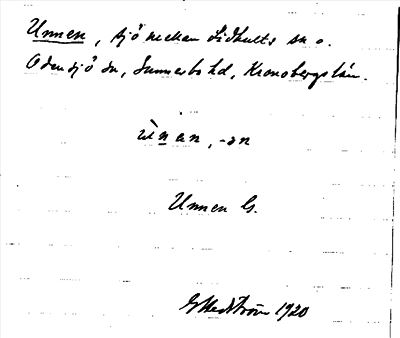 Unnen, sjö mellan Lidhults sn o.
Odensjö sn, Sunnerbo hd, Kronobergs län.
ùnan, -ən
Unnen G.
G Hedström 1920